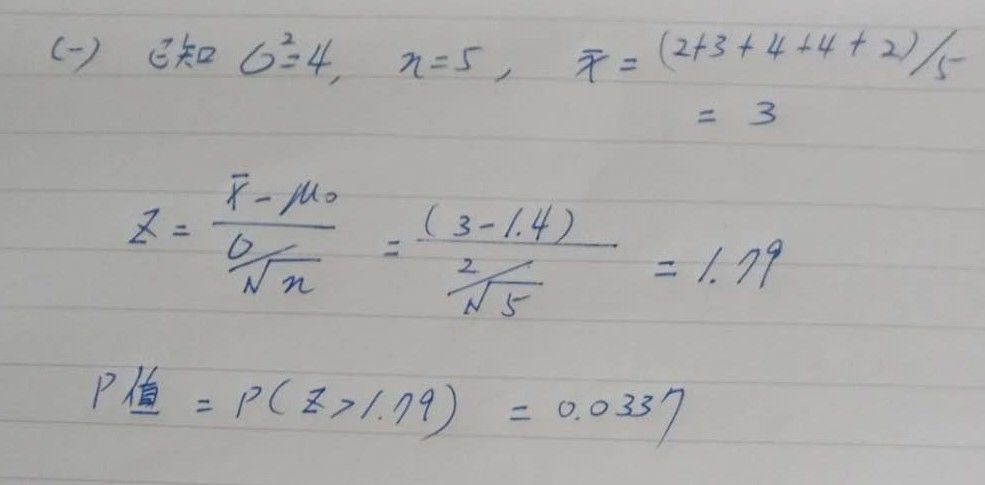 (一) 已知 σ²=4, n=5, x̄ = (2+3+4+4+2)/5
= 3
Z = (x̄ - μ₀)/(σ/√n) = (3-1.4)/(2/√5) = 1.79
P值 = P(Z>1.79) = 0.0337